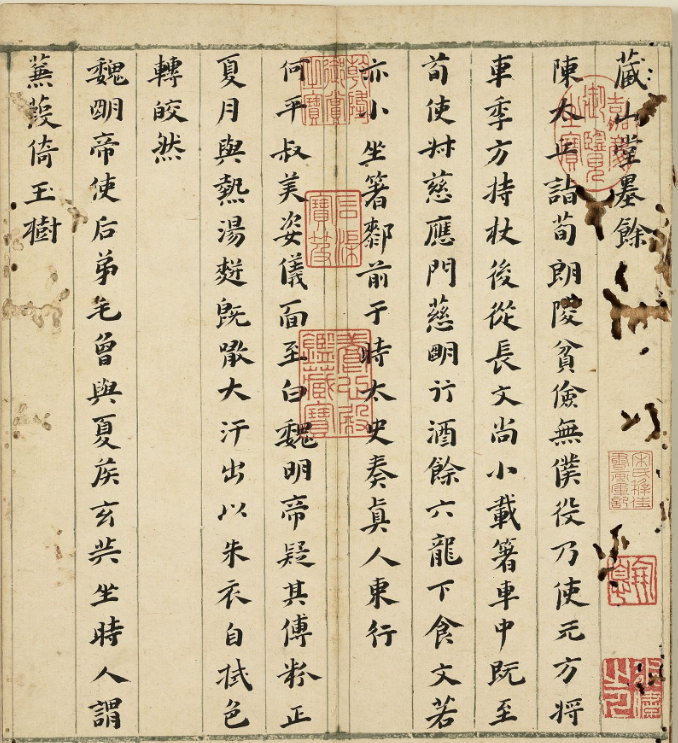 藏山堂墨餘
陳太丘詣荀朗陵貧儉無僕役乃使元方將
車季方持杖後從長文尚小載箸車中既至
荀使叔慈應門慈明行酒餘六龍下食文若
亦小坐箸厀前于時太史奏真人東行
何平叔美姿儀面至白魏明帝疑其傅粉正
夏月與熱湯麪既噉大汗出以朱衣自拭色
轉皎然
魏明帝使后弟毛曾與夏矦玄共坐時人謂
蒹葭倚玉樹
嘉慶御覽之寶
石渠寶笈
養心殿鑑藏寶